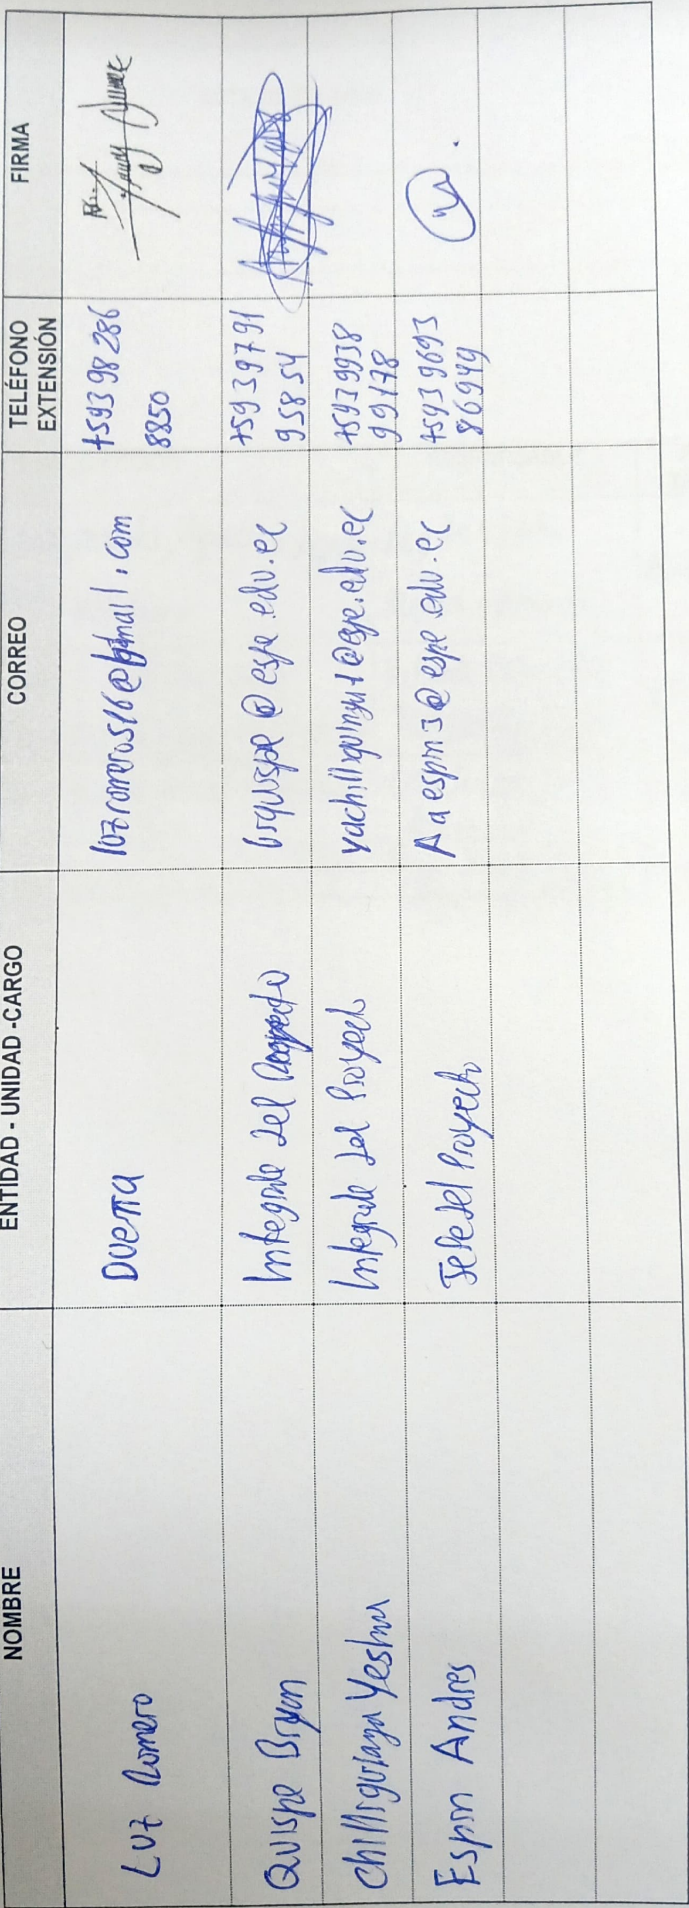 NOMBRE ENTIDAD - UNIDAD -CARGO CORREO TELÉFONO EXTENSIÓN FIRMA
Luz Romero Dueña luzromero516@gmail.com +593 98 286 8850
Quispe Bryan Integrante del Proyecto brquispe@espe.edu.ec +59 39791 95854
Yeshua Integrante del Proyecto +5939938 99178
Espin Andres Jefe del Proyecto Aaespin3@espe.edu.ec +5939693 86949